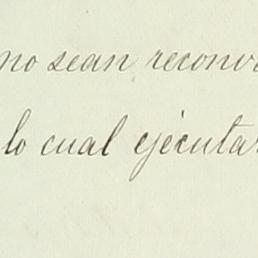 no sean reconv
lo cual ejecutar